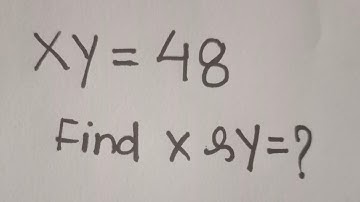 XY = 48
Find X & Y = ?